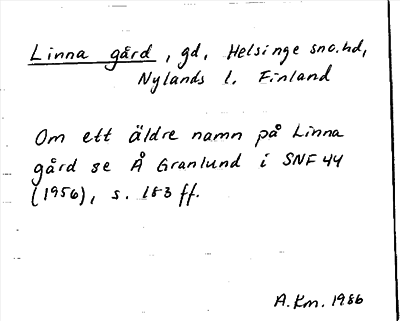 Linna gård, gd, Helsinge sno.hd,
Nylands l. Finland
Om ett äldre namn på Linna
gård se Å Granlund i SNF 44
(1956), s. 183 ff.
A.Km. 1986